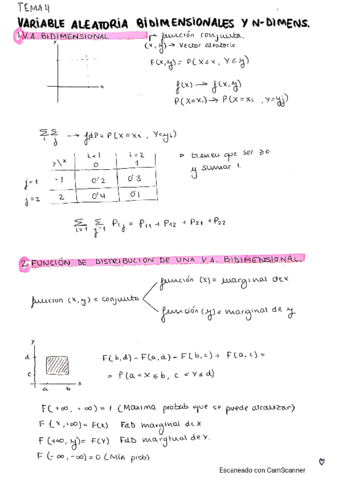 TEMA 4
VARIABLE ALEATORIA BIDIMENSIONALES Y N-DIMENS.
1. V.A. BIDIMENSIONAL
función conjunta
(x, y) → vector aleatorio
F(x,y) = P(X≤x, Y≤y)
f(x) → f(x,y)
P(X=xi) → P(X=xi, Y=yj)
Σ Σ → fdP = P(X=xi, Y=yj)
i j
i=1 i=2
y\x 0 1
j=1 -1 0'2 0'3
j=2 2 0'4 0'1
tienen que ser ≥0
y sumar 1.
Σ Σ Pij = P11 + P12 + P21 + P22
i=1 j=1
2. FUNCIÓN DE DISTRIBUCION DE UNA V.A. BIDIMENSIONAL.
función (x) = marginal de x
funcion (x,y) = conjunta
función (y) = marginal de y
y
d
c
a b x
F(b,d) - F(a,d) - F(b,c) + F(a,c) =
= P(a<X≤b, c<Y≤d)
F(+∞, +∞) = 1 (Maxima probab que se puede alcanzar)
F(x,+∞) = F(x) FdD marginal de x
F(+∞, y) = F(Y) FdD marginal de Y.
F(-∞, -∞) = 0 (Mín prob)
Escaneado con CamScanner